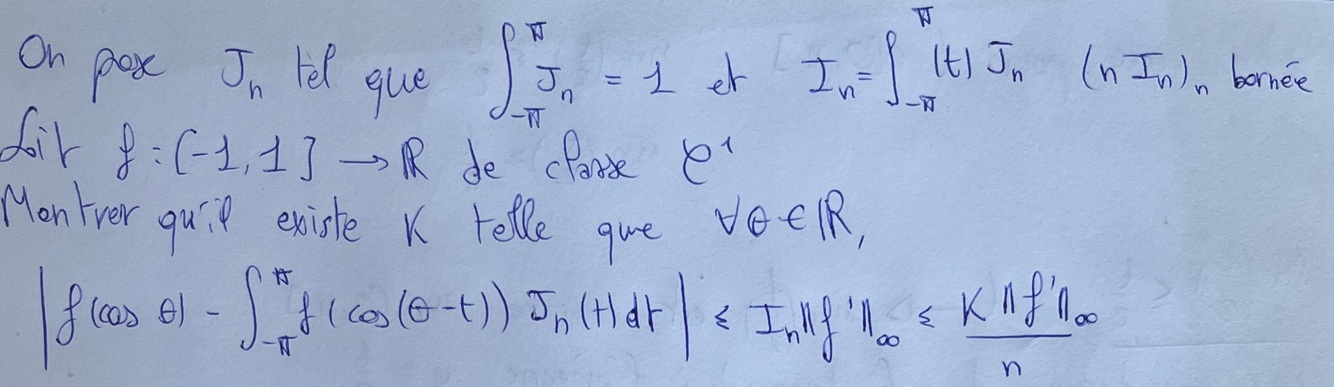 On pose J_n tel que ∫_{-π}^{π} J_n = 1 et I_n = ∫_{-π}^{π} |t| J_n (n I_n)_n bornée
Soit f : [-1, 1] → ℝ de classe C^1
Montrer qu'il existe K telle que ∀θ ∈ ℝ,
|f(cos θ) - ∫_{-π}^{π} f(cos(θ-t)) J_n(t) dt| ≤ I_n ||f'||_∞ ≤ K ||f'||_∞ / n